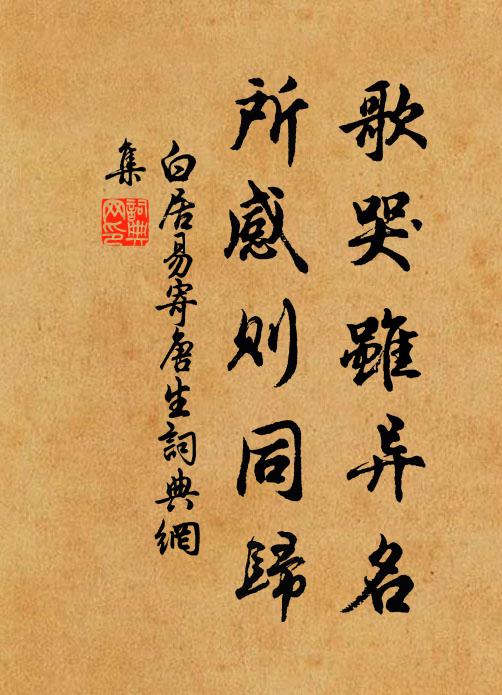 歌哭雖异名
所感則同歸
白居易寄唐生詞典網
集
詞典
网印